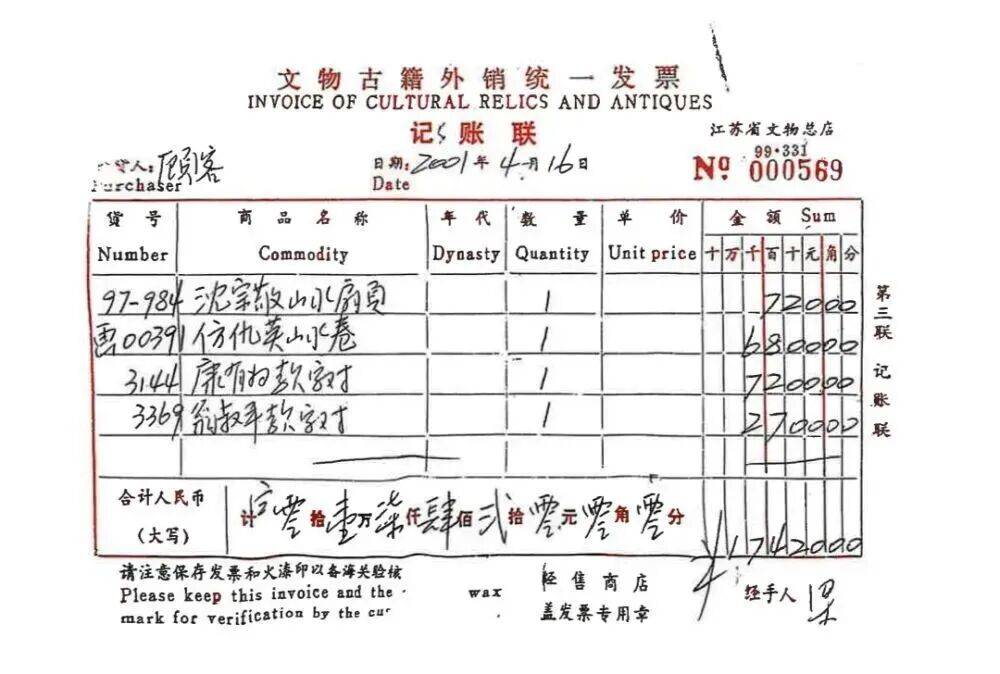 文物古籍外销统一发票
INVOICE OF CULTURAL RELICS AND ANTIQUES
记账联
江苏省文物总店
99·331
货人: 顾客 日期: 2001年4月16日 Nº 000569
Purchaser Date
货号 商品名称 年代 数量 单价 金额 Sum
Number Commodity Dynasty Quantity Unit price 十万千百十元角分
97-984 沈宗敬山水扇页 1 72000
画00391 仿仇英山水卷 1 680000
3144 康有为款字对 1 720000
3369 翁叔平款字对 1 270000
合计人民币
(大写)
计 零拾壹万柒仟肆佰弍拾零元零角零分 ¥1742000
请注意保存发票和火漆印以备海关验核
Please keep this invoice and the wax
mark for verification by the
经售商店
盖发票专用章
经手人
第三联 记账联